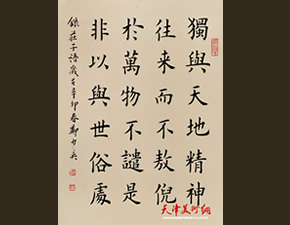 獨與天地精神
往来而不敖倪
於萬物不譴是
非以與世俗處
錄莊子語歲在辛卯春鄭少英
天津美术網